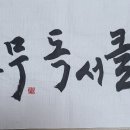 무독서클